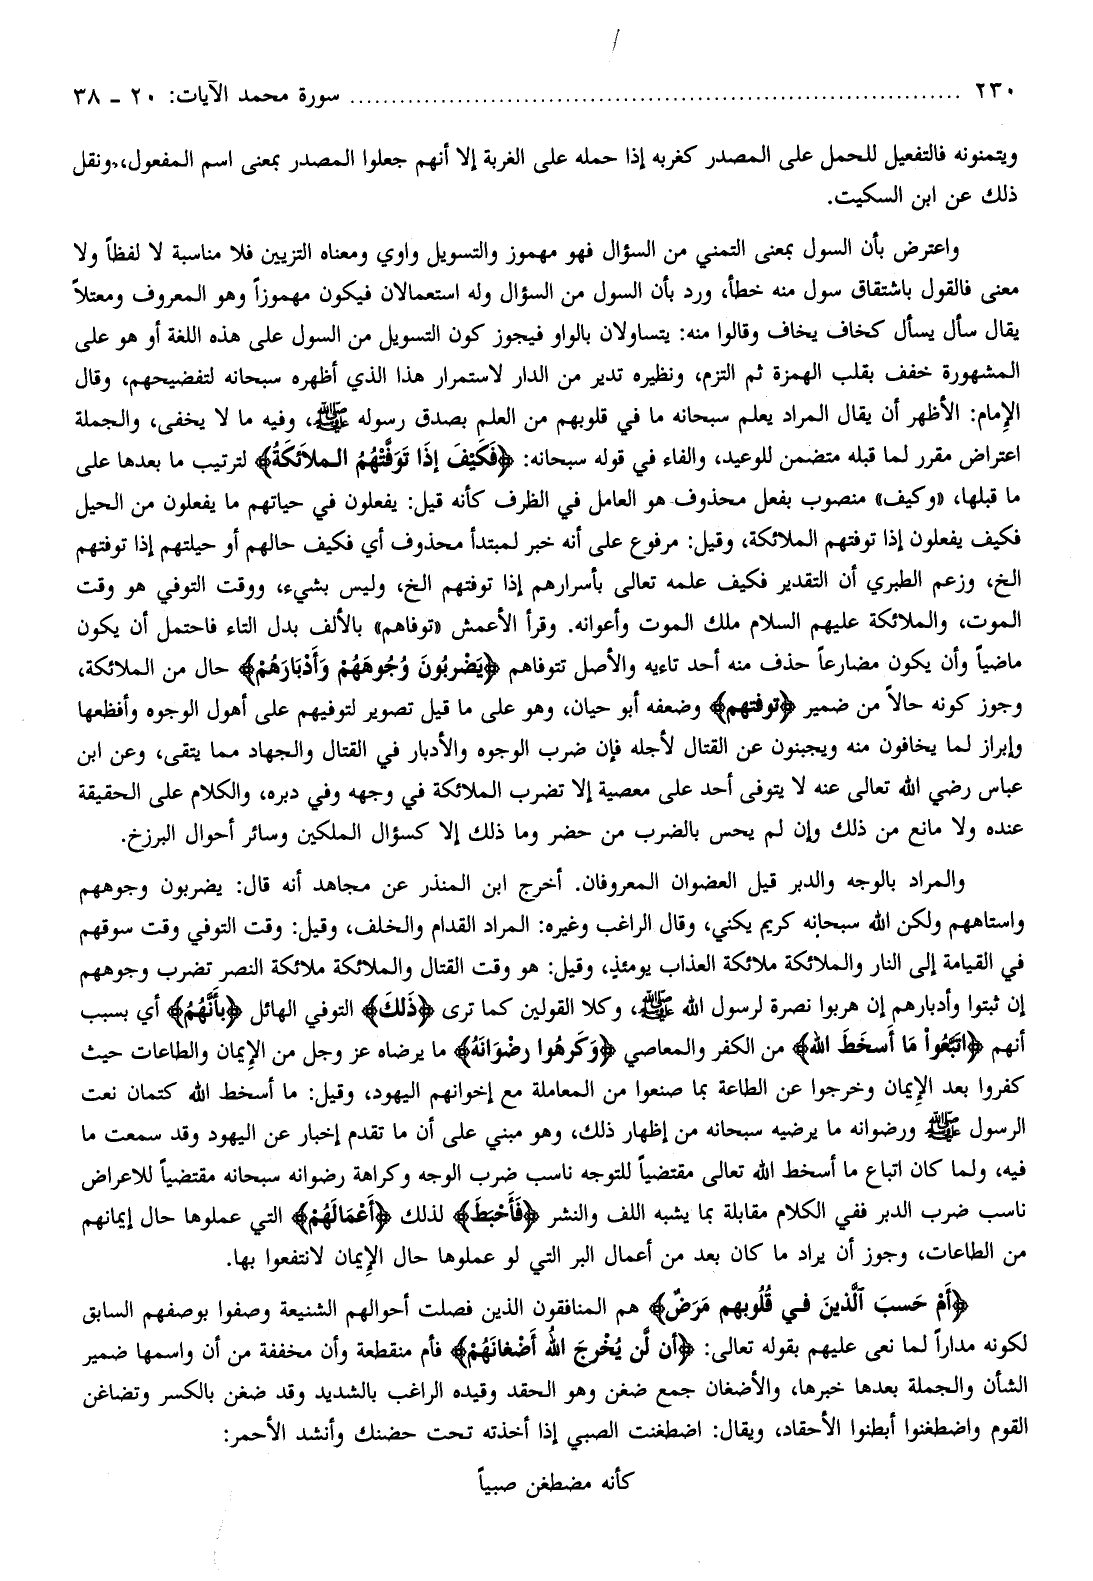 ٢٣٠ ........................................ سورة محمد الآيات: ٢٠ - ٣٨
ويتمنونه فالتفعيل للحمل على المصدر كغربه إذا حمله على الغربة إلا أنهم جعلوا المصدر بمعنى اسم المفعول،،ونقل
ذلك عن ابن السكيت.
واعترض بأن السول بمعنى التمني من السؤال فهو مهموز والتسويل واوي ومعناه التزيين فلا مناسبة لا لفظاً ولا
معنى فالقول باشتقاق سول منه خطأ، ورد بأن السول من السؤال وله استعمالان فيكون مهموزاً وهو المعروف ومعتلاً
يقال سأل يسأل كخاف يخاف وقالوا منه: يتساولان بالواو فيجوز كون التسويل من السول على هذه اللغة أو هو على
المشهورة خفف بقلب الهمزة ثم التزم، ونظيره تدير من الدار لاستمرار هذا الذي أظهره سبحانه لتفضيحهم، وقال
الإمام: الأظهر أن يقال المراد يعلم سبحانه ما في قلوبهم من العلم بصدق رسوله ﷺ، وفيه ما لا يخفى، والجملة
اعتراض مقرر لما قبله متضمن للوعيد، والفاء في قوله سبحانه: ﴿فَكَيْفَ إذَا تَوَفَّتْهُمُ الملاَئكَةُ﴾ لترتيب ما بعدها على
ما قبلها، «وكيف» منصوب بفعل محذوف هو العامل في الظرف كأنه قيل: يفعلون في حياتهم ما يفعلون من الحيل
فكيف يفعلون إذا توفتهم الملائكة، وقيل: مرفوع على أنه خبر لمبتدأ محذوف أي فكيف حالهم أو حيلتهم إذا توفتهم
الخ، وزعم الطبري أن التقدير فكيف علمه تعالى بأسرارهم إذا توفتهم الخ، وليس بشيء، ووقت التوفي هو وقت
الموت، والملائكة عليهم السلام ملك الموت وأعوانه. وقرأ الأعمش «توفاهم» بالألف بدل التاء فاحتمل أن يكون
ماضياً وأن يكون مضارعاً حذف منه أحد تاءيه والأصل تتوفاهم ﴿يَضْربُونَ وُجُوهَهُمْ وَأَدْبَارَهُمْ﴾ حال من الملائكة،
وجوز كونه حالاً من ضمير ﴿توفتهم﴾ وضعفه أبو حيان، وهو على ما قيل تصوير لتوفيهم على أهول الوجوه وأفظعها
وإبراز لما يخافون منه ويجبنون عن القتال لأجله فإن ضرب الوجوه والأدبار في القتال والجهاد مما يتقى، وعن ابن
عباس رضي الله تعالى عنه لا يتوفى أحد على معصية إلا تضرب الملائكة في وجهه وفي دبره، والكلام على الحقيقة
عنده ولا مانع من ذلك وإن لم يحس بالضرب من حضر وما ذلك إلا كسؤال الملكين وسائر أحوال البرزخ.
والمراد بالوجه والدبر قيل العضوان المعروفان. أخرج ابن المنذر عن مجاهد أنه قال: يضربون وجوههم
واستاههم ولكن الله سبحانه كريم يكني، وقال الراغب وغيره: المراد القدام والخلف، وقيل: وقت التوفي وقت سوقهم
في القيامة إلى النار والملائكة ملائكة العذاب يومئذٍ، وقيل: هو وقت القتال والملائكة ملائكة النصر تضرب وجوههم
إن ثبتوا وأدبارهم إن هربوا نصرة لرسول الله ﷺ، وكلا القولين كما ترى ﴿ذَلكَ﴾ التوفي الهائل ﴿بأَنَّهُمُ﴾ أي بسبب
أنهم ﴿اتَّبَعُواْ مَا أَسخَطَ الله﴾ من الكفر والمعاصي ﴿وَكَرهُوا رضْوَانَهُ﴾ ما يرضاه عز وجل من الإيمان والطاعات حيث
كفروا بعد الإيمان وخرجوا عن الطاعة بما صنعوا من المعاملة مع إخوانهم اليهود، وقيل: ما أسخط الله كتمان نعت
الرسول ﷺ ورضوانه ما يرضيه سبحانه من إظهار ذلك، وهو مبني على أن ما تقدم إخبار عن اليهود وقد سمعت ما
فيه، ولما كان اتباع ما أسخط الله تعالى مقتضياً للتوجه ناسب ضرب الوجه وكراهة رضوانه سبحانه مقتضياً للاعراض
ناسب ضرب الدبر ففي الكلام مقابلة بما يشبه اللف والنشر ﴿فَأَحْبَطَ﴾ لذلك ﴿أَعْمَالَهُمْ﴾ التي عملوها حال إيمانهم
من الطاعات، وجوز أن يراد ما كان بعد من أعمال البر التي لو عملوها حال الإيمان لانتفعوا بها.
﴿أَمْ حَسبَ ٱلَّذينَ في قُلُوبهم مَرَضٌ﴾ هم المنافقون الذين فصلت أحوالهم الشنيعة وصفوا بوصفهم السابق
لكونه مداراً لما نعى عليهم بقوله تعالى: ﴿أن لَّن يُخْرجَ اللهُ أَضْغانَهُمْ﴾ فأم منقطعة وأن مخففة من أن واسمها ضمير
الشأن والجملة بعدها خبرها، والأضغان جمع ضغن وهو الحقد وقيده الراغب بالشديد وقد ضغن بالكسر وتضاغن
القوم واضطغنوا أبطنوا الأحقاد، ويقال: اضطغنت الصبي إذا أخذته تحت حضنك وأنشد الأحمر:
كأنه مضطغن صبياً